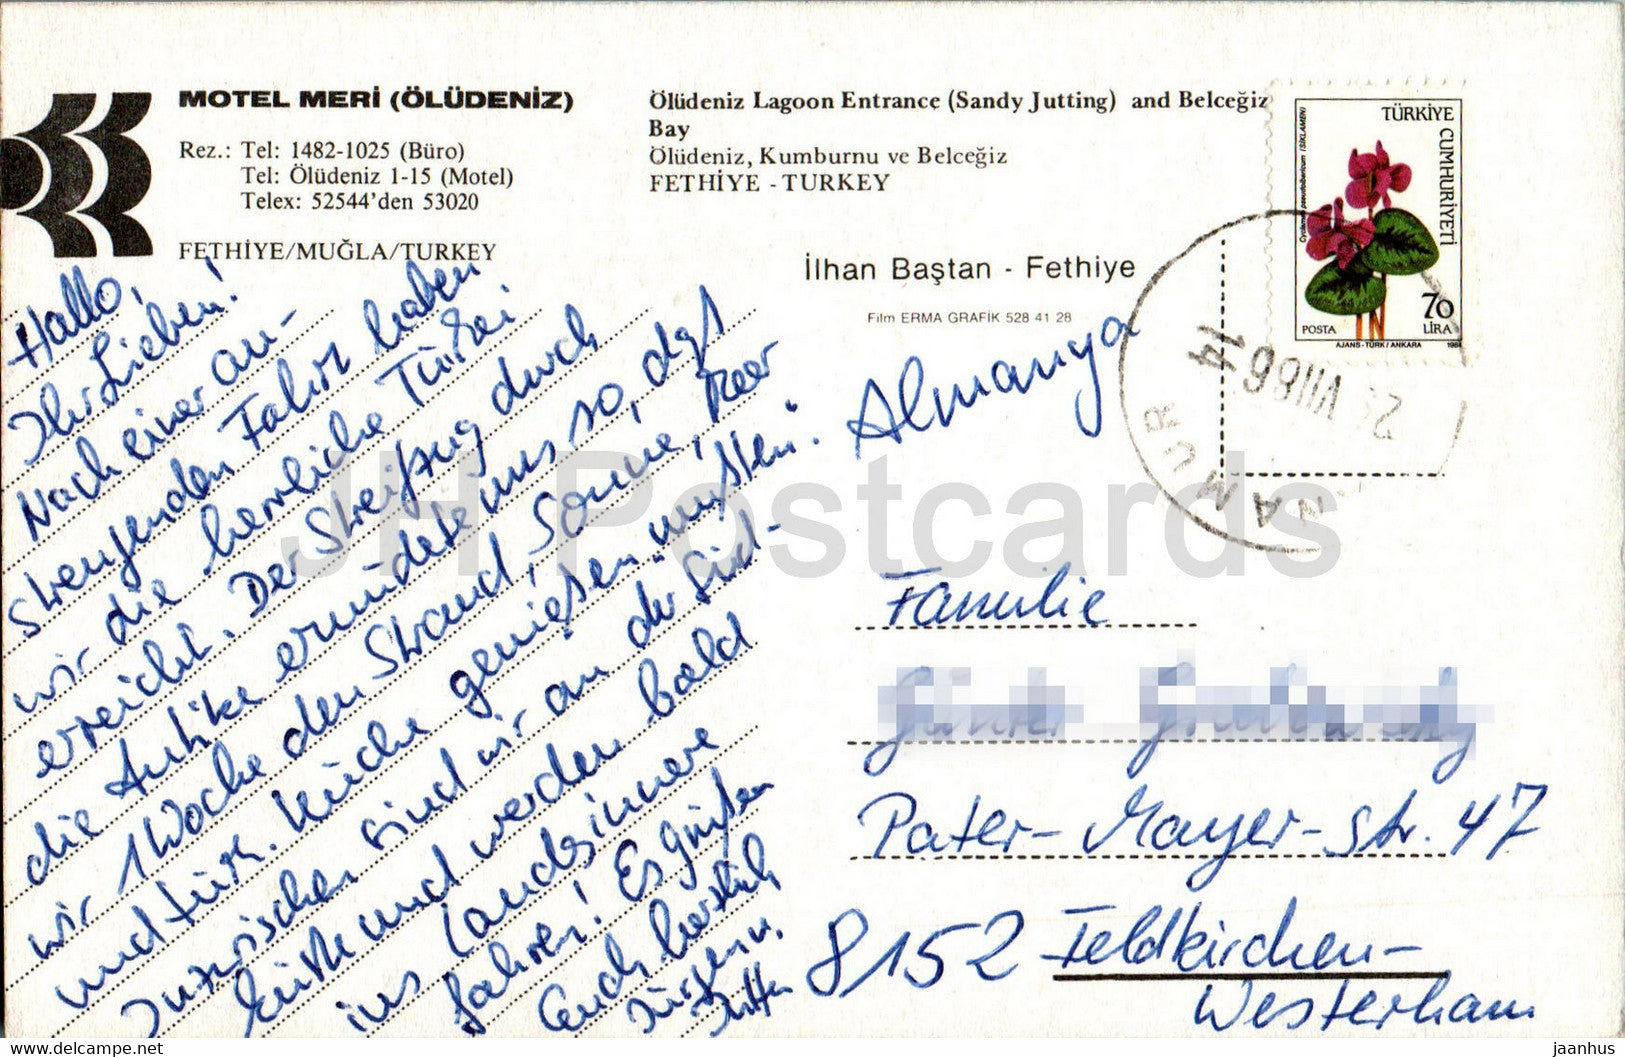 MOTEL MERİ (ÖLÜDENİZ)
Rez.: Tel: 1482-1025 (Büro)
Tel: Ölüdeniz 1-15 (Motel)
Telex: 52544'den 53020
FETHİYE/MUĞLA/TURKEY
Ölüdeniz Lagoon Entrance (Sandy Jutting) and Belceğiz
Bay
Ölüdeniz, Kumburnu ve Belceğiz
FETHİYE - TURKEY
İlhan Baştan - Fethiye
Film ERMA GRAFİK 528 41 28
TÜRKİYE
CUMHURİYETİ
Cyclamen pseudoibericum (SİKLAMEN)
70
LİRA
POSTA
AJANS-TÜRK / ANKARA 1984
VIII 86
14
NAMUR
Hallo,
Ihr Lieben!
Nach einer an-
strengenden Fahrt haben
wir die herrliche Türkei
erreicht. Der Streifzug durch
die Antike ermüdete uns so, daß
wir 1 Woche den Strand, Sonne, Meer
und türk. Küche genießen mußten.
Inzwischen sind wir an der Süd-
küste und werden bald
ins Landesinnere
fahren! Es grüßen
Euch herzlich
Jürgen u.
Almanya
Familie
Pater-Mayer-Str. 47
8152 Feldkirchen-
Westerham
JH Postcards
jaanhus DELCAMPE.NET